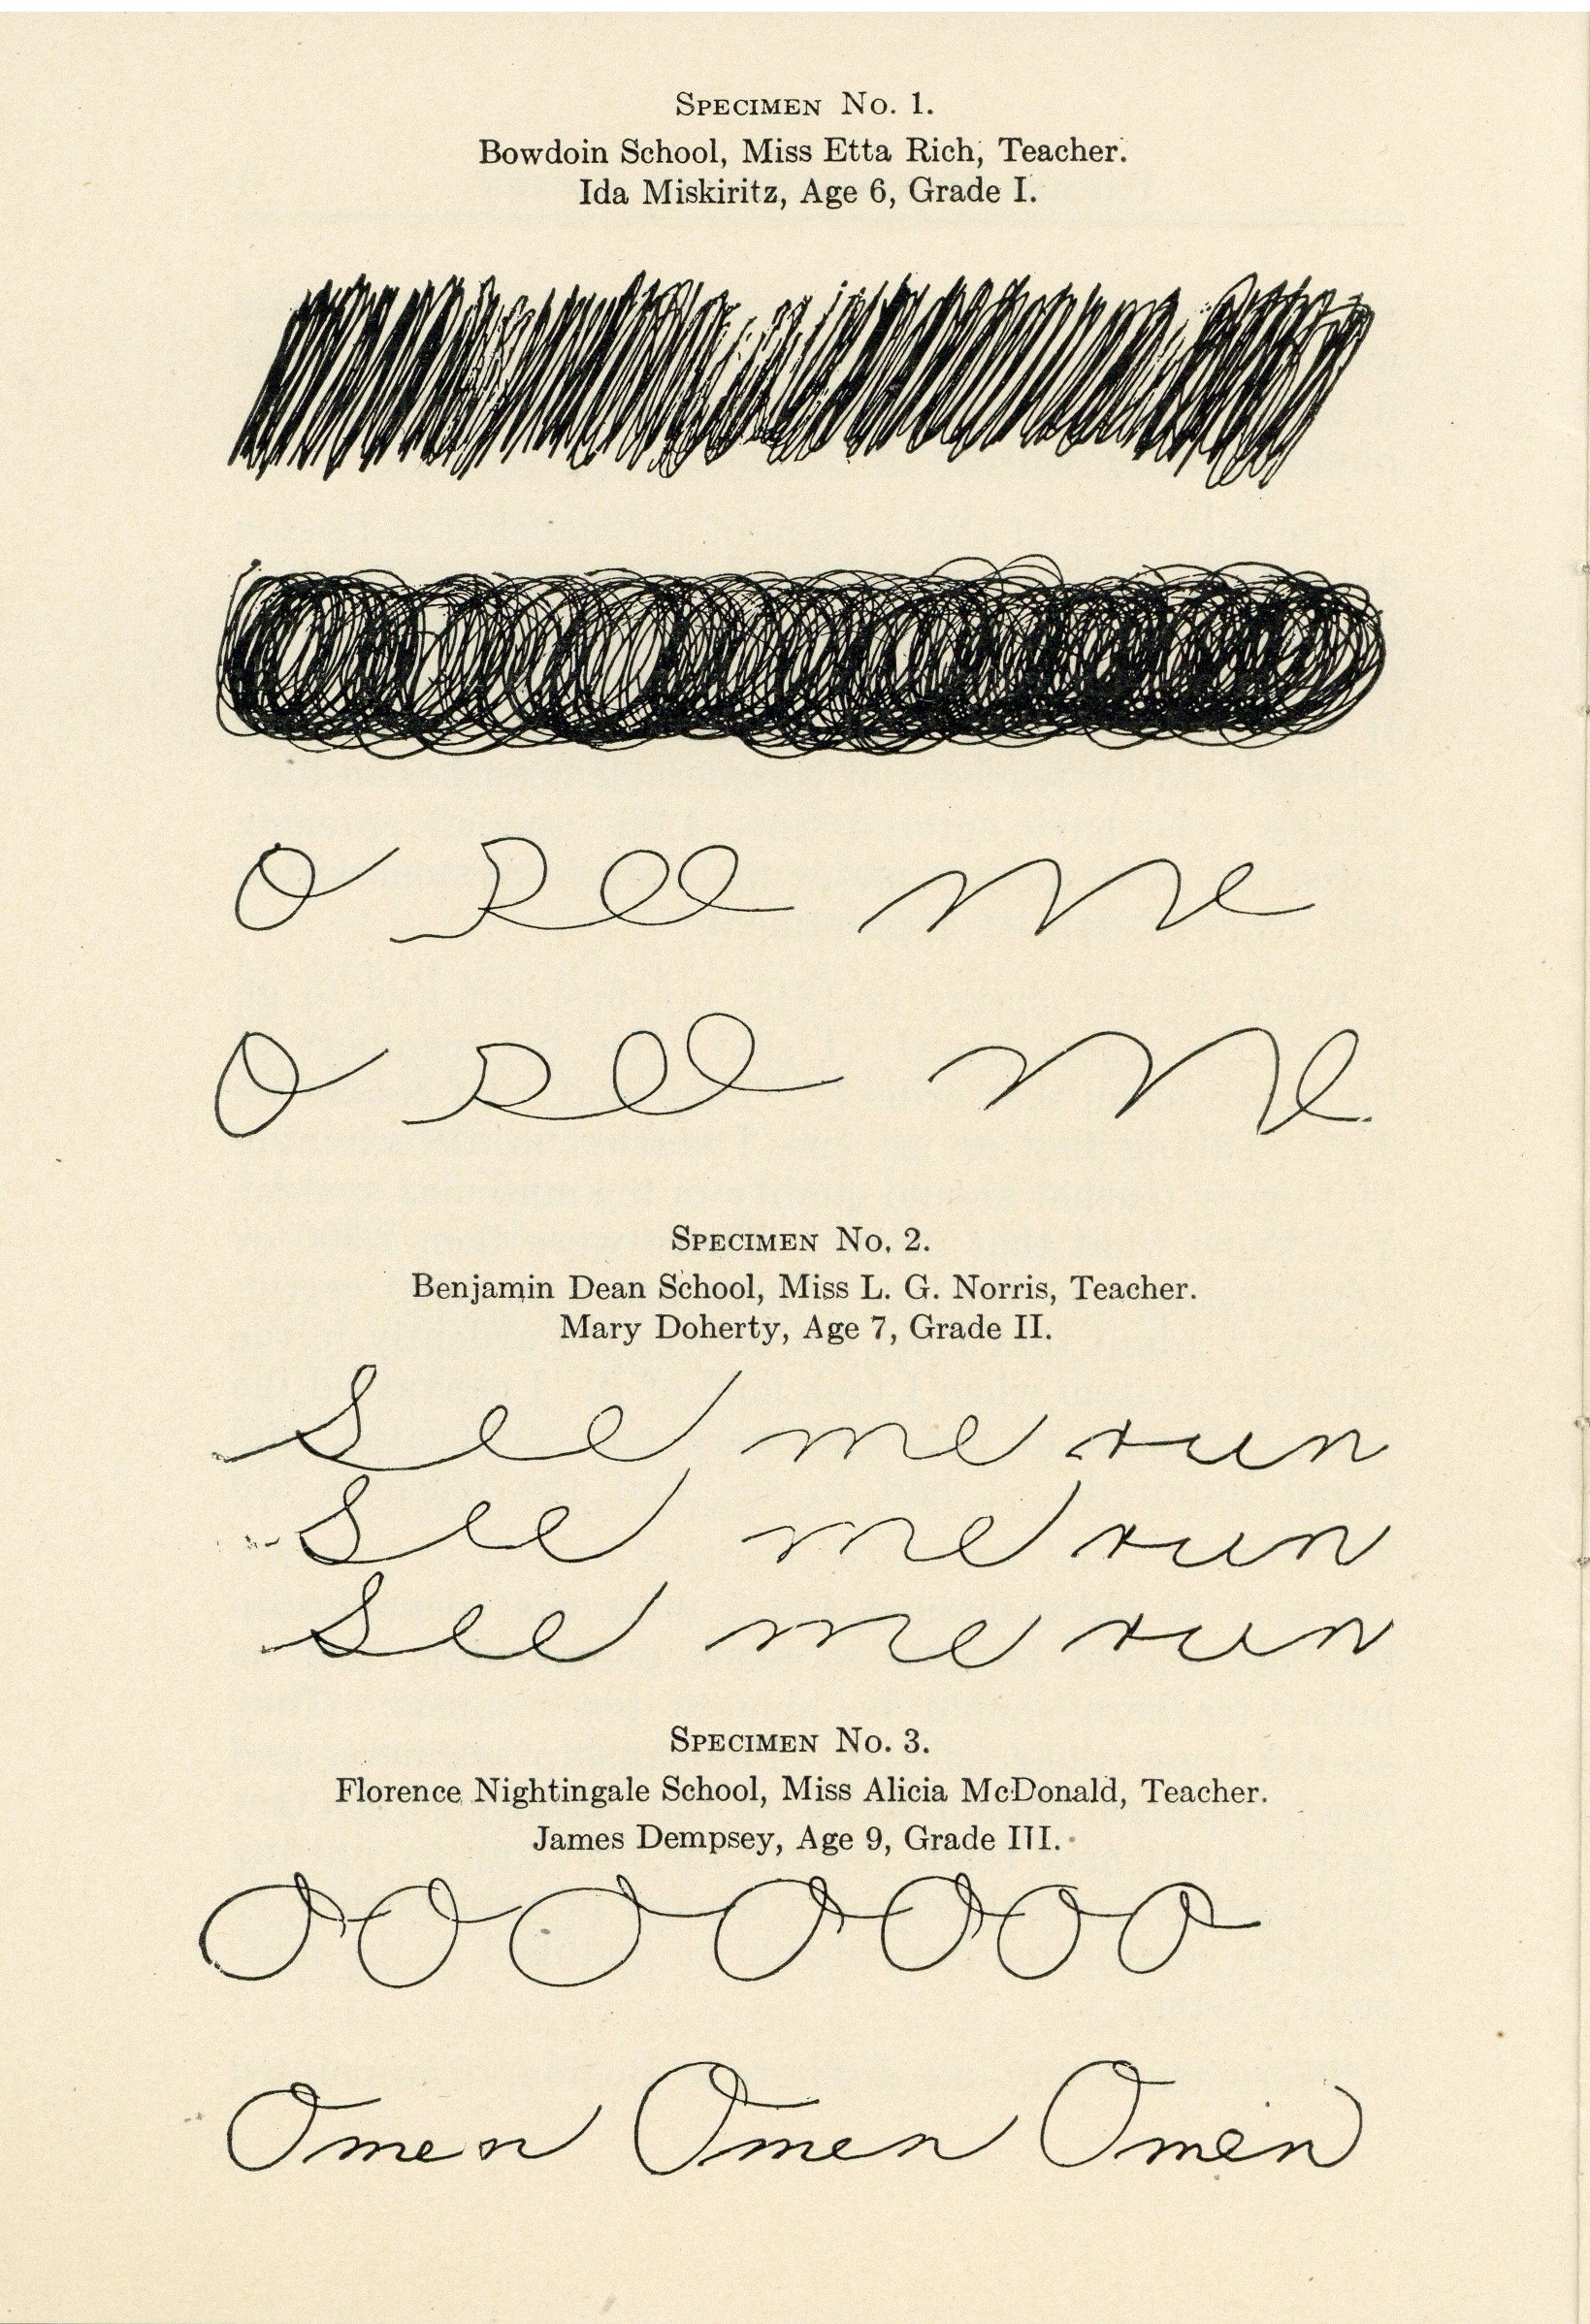 Specimen No. 1.
Bowdoin School, Miss Etta Rich, Teacher.
Ida Miskiritz, Age 6, Grade I.
O see me
O see me
Specimen No. 2.
Benjamin Dean School, Miss L. G. Norris, Teacher.
Mary Doherty, Age 7, Grade II.
See me run
See me run
See me run
Specimen No. 3.
Florence Nightingale School, Miss Alicia McDonald, Teacher.
James Dempsey, Age 9, Grade III.
O O O O O O O
Omen Omen Omen